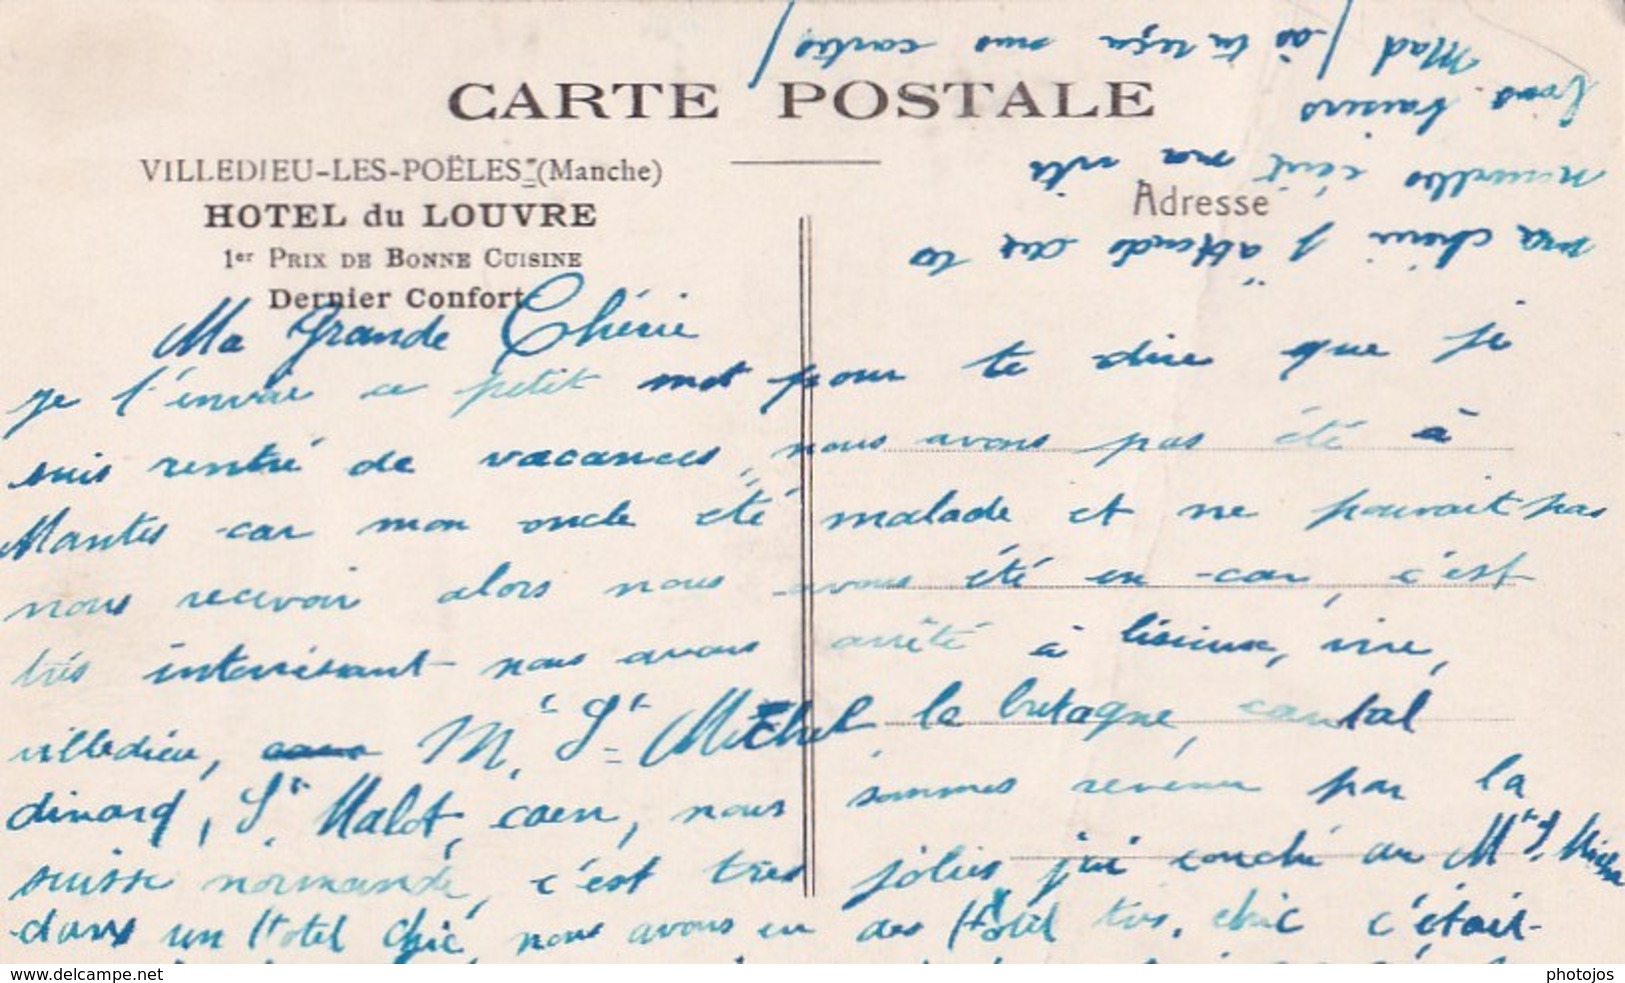 CARTE POSTALE
VILLEDIEU-LES-POËLES (Manche)
HOTEL du LOUVRE
1er PRIX DE BONNE CUISINE
Dernier Confort
Adresse
Ma Grande Chérie
je t'envoie ce petit mot pour te dire que je
suis rentré de vacances, nous avons pas été à
Mantes car mon oncle été malade et ne pouvait pas
nous recevoir alors nous avons été en car, c'est
très intérrissant nous avons arrêté à lisieux, vire,
villedieu, Mt St Michel la bretagne, cantal
dinard, St Malot, caen, nous sommes revenu par la
suisse normande, c'est tres jolies j'ai couché au Mt St Michel
dans un Hotel chic, nous avons eu des Hotel tres chic c'était
ma cherie j'attends de tes
nouvelles écrit ma vite
bons baisers
Mad / as tu reçu mes cartes /
www.delcampe.net
photojos